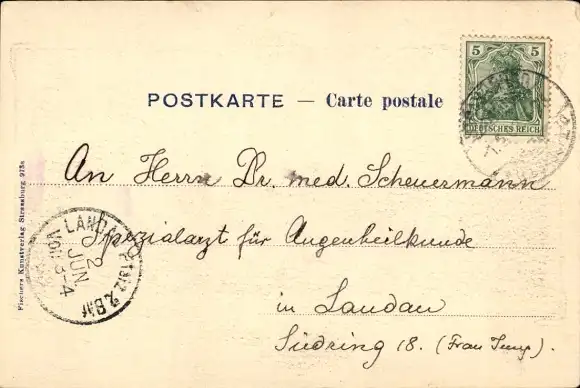 POSTKARTE — Carte postale
5 5
DEUTSCHES REICH
An Herrn Dr. med. Scheuermann
Spezialarzt für Augenheilkunde
in Landau
Südring 18. (Frau
LANDAU PFALZ
2
JUN
3-4
Fischers Kunstverlag Strassburg